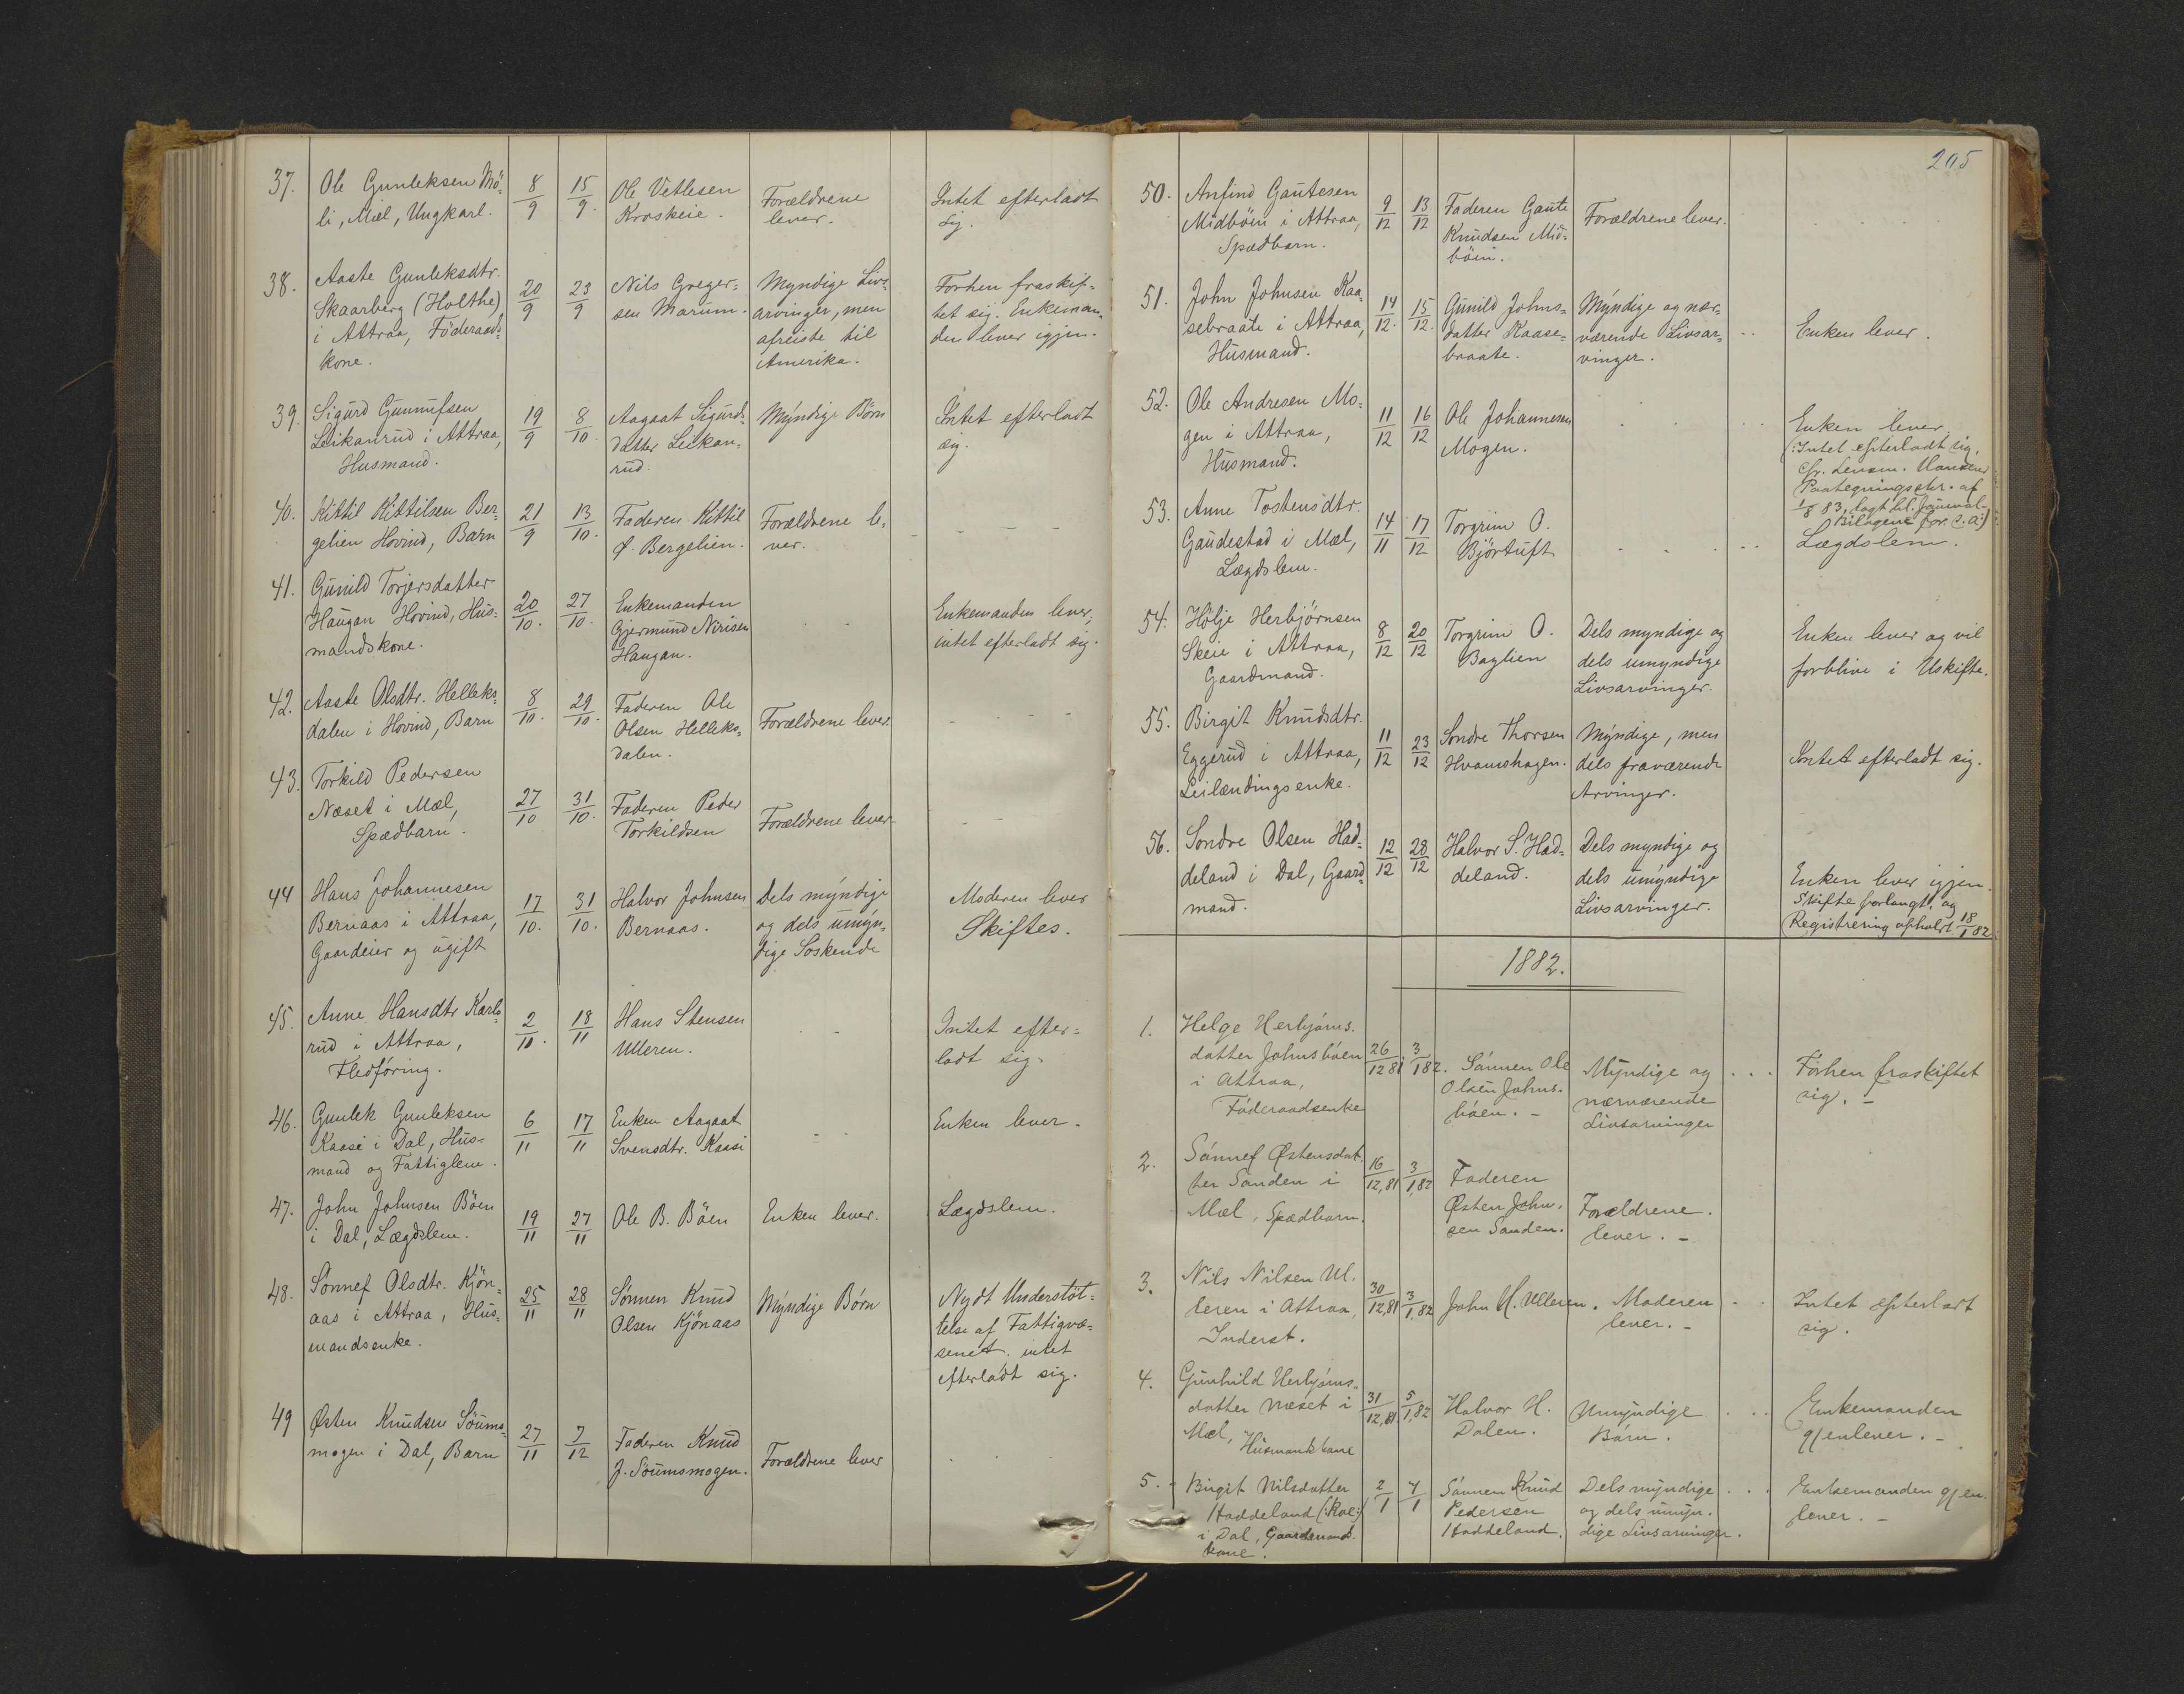 37. Ole Gunleksen Mö-
li, Mæl, Ungkarl.
8/9
15/9.
Ole Vetlesen
Kroskeie.
Forældrene
lever.
Intet efterladt
sig.
38. Aaste Gunleksdtr.
Skaarberg (Holthe)
i Attraa, Föderaads-
kone.
20/9
23/9
Nils Greger-
sen Marum.
Myndige Livs-
arvinger, men
afreiste til
Amerika.
Forhen fraskif-
tet sig. Enkeman-
den lever igjen.
39. Sigurd Gunnufsen
Leikanrud i Attraa,
Husmand.
19/9
8/10.
Aagaat Sigurds-
datter Leikan-
rud.
Myndige Børn
Intet efterladt
sig.
40. Kittil Kittilsen Ber-
gelien Hovind, Barn
21/9
13/10.
Faderen Kittil
Ø. Bergelien.
Forældrene le-
ver.
41. Gunild Torjersdatter
Haugan Hovind, Hus-
mandskone.
20/10.
27/10.
Enkemanden
Gjermund Nirisen
Haugan.
Enkemanden lever,
intet efterladt sig.
42. Aaste Olsdtr. Helleks-
dalen i Hovind, Barn
8/10.
29/10.
Faderen Ole
Olsen Helleks-
dalen.
Forældrene lever.
43. Torkild Pedersen
Næset i Mæl,
Spædbarn.
27/10
31/10.
Faderen Peder
Torkildsen
Forældrene lever
44 Hans Johannesen
Bernaas i Attraa,
Gaardeier og ugift
17/10.
31/10.
Halvor Johnsen
Bernaas.
Dels myndige
og dels umyn-
dige Søskende
Moderen lever
Skiftes.
45. Anne Hansdtr Karls-
rud i Attraa,
Fledföring.
2/11.
18/11
Hans Stensen
Ulleren.
Intet efter-
ladt sig.
46. Gunlek Gunleksen
Kaasi i Dal, Hus-
mand og Fattiglem.
6/11
17/11
Enken Aagaat
Svensdtr. Kaasi
Enken lever.
47. John Johnsen Böen
i Dal, Lægdslem.
19/11
27/11
Ole B. Böen
Enken lever.
Lægdslem.
48. Sønnef Olsdtr. Kjön-
aas i Attraa, Hus-
mandsenke.
25/11
28/11
Sønnen Knud
Olsen Kjönaas
Myndige Børn
Nydt Understöt-
telse af Fattigvæ-
senet. intet
efterladt sig.
49 Østen Knudsen Söums-
mogen i Dal, Barn
27/11
7/12
Faderen Knud
J. Söumsmogen.
Forældrene lever
205
50. Anfind Gautesen
Midböen i Attraa,
Spædbarn.
9/12
13/12
Faderen Gaute
Knudsen Mid-
böen.
Forældrene lever.
51. John Johnsen Kaa-
sebraate i Attraa,
Husmand.
14/12.
15/12.
Gunild Johns-
datter Kaase-
braate.
Myndige og nær-
værende Livsar-
vinger.
Enken lever.
52. Ole Andresen Mo-
gen i Attraa,
Husmand.
11/12
16/12
Ole Johannesen
Mogen.
Enken lever.
(Intet efterladt sig,
cfr. Lensm. Hansens
Paategningsskr. af
1/8 83, lagt bl. Journal-
Bilagene for s. A.)
53. Anne Tostensdtr.
Gaudestad i Mæl,
Lægdslem.
14/11
17/12
Torgrim O.
Björtuft
Lægdslem.
54. Hölje Herbjörnsen
Skeie i Attraa,
Gaardmand.
8/12
20/12
Torgrim O.
Baglien
Dels myndige og
dels umyndige
Livsarvinger.
Enken lever og vil
forblive i Uskifte.
55. Birgit Knudsdtr.
Eggerud i Attraa,
Leilændingsenke.
11/12
23/12
Sondre Thorsen
Hvamshagen.
Myndige, men
dels fraværende
Arvinger.
Intet efterladt sig.
56. Sondre Olsen Had-
deland i Dal, Gaard-
mand.
12/12
28/12
Halvor S. Had-
deland.
Dels myndige og
dels umyndige
Livsarvinger.
Enken lever igjen.
Skifte forlangt, og
Registrering afholdt 18/1 82.
1882.
1. Helge Herbjørns-
datter Johnsbøen
i Attraa,
Føderaadsenke
26/12 81
3/1 82.
Sønnen Ole
Olsen Johns-
bøen. -
Myndige og
nærværende
Livsarvinger
Forhen fraskiftet
sig. -
2. Sønnef Østensdat-
ter Sanden i
Mæl, Spædbarn.
16/12,81
3/1,82
Faderen
Østen John-
sen Sanden.
Forældrene
lever. -
3. Nils Nilsen Ul-
leren i Attraa,
Inderst.
30/12,81
3/1,82
John H. Ulleren.
Moderen
lever. -
Intet efterladt
sig.
4. Gunhild Herbjørns-
datter Næset i
Mæl, Husmandskone
31/12,81
5/1,82
Halvor H.
Dalen.
Umyndige
Børn.
Enkemanden
gjenlever. -
5. Birgit Nilsdatter
Haddeland (:Rae:)
i Dal, Gaardmands-
kone.
2/1
7/1
Sønnen Knud
Pedersen
Haddeland.
Dels myndige
og dels umyn-
dige Livsarvinger.
Enkemanden gjen-
lever. -